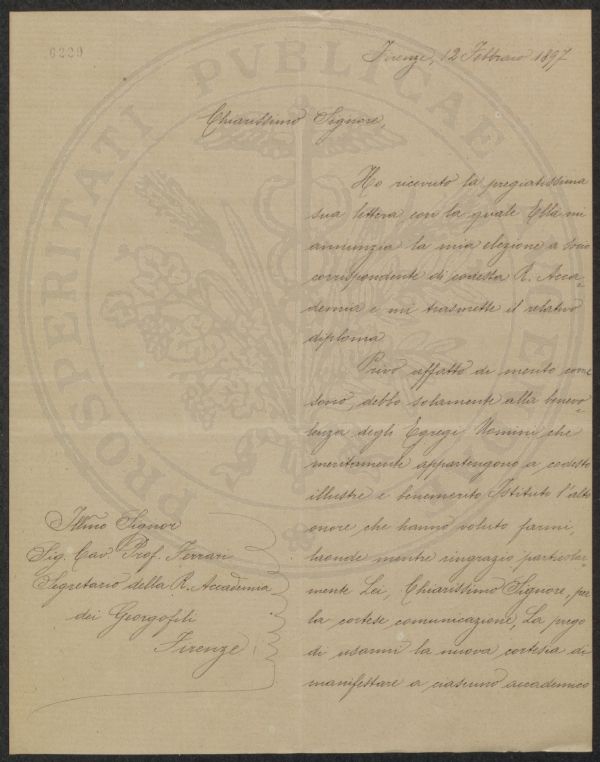 6229
Firenze, 12 Febbraio 1897
Chiarissimo Signore,
Ho ricevuto la pregiatissima
sua lettera con la quale Ella mi
annunzia la mia elezione a Socio
corrispondente di codesta R. Acca-
demia e mi trasmette il relativo
diploma
Privo affatto di merito come
sono, debbo solamente alla benevo-
lenza degli Egregi Uomini che
meritamente appartengono a codesto
illustre e benemerito Istituto l'alto
onore che hanno voluto farmi,
laonde mentre ringrazio particolar-
mente Lei, Chiarissimo Signore, per
la cortese comunicazione, La prego
di usarmi la nuova cortesia di
manifestare a ciascuno accademico
Illmo Signor
Sig. Cav. Prof. Ferrari
Segretario della R. Accademia
dei Georgofili
Firenze
PROSPERITATI PVBLICAE